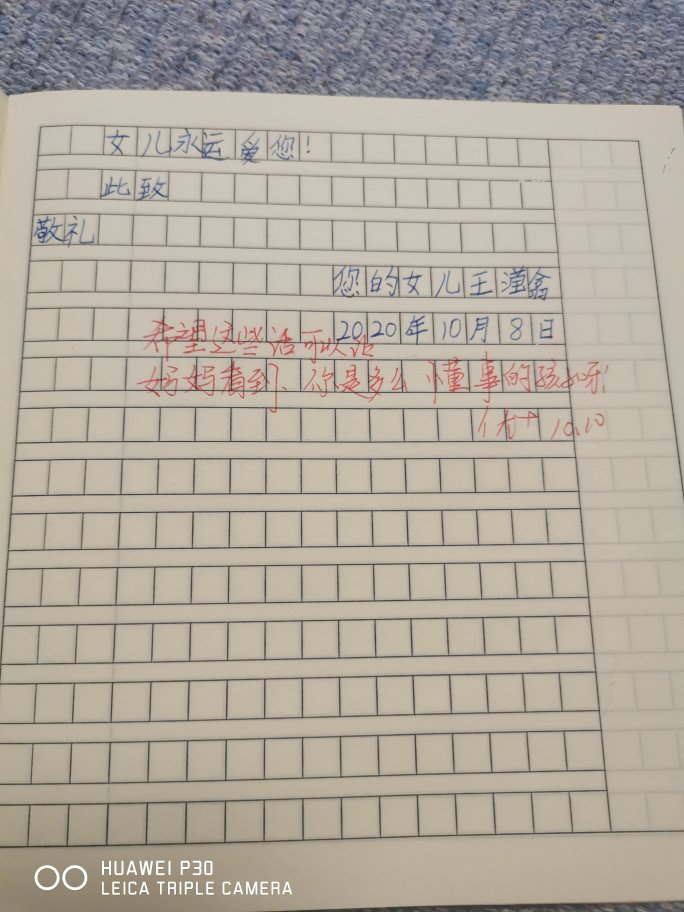 女儿永远爱您!
此致
敬礼
您的女儿王瑾翕
2020年10月8日
希望这些话可以让
妈妈看到、你是多么懂事的孩子呀!
优+ 10.10
HUAWEI P30
LEICA TRIPLE CAMERA